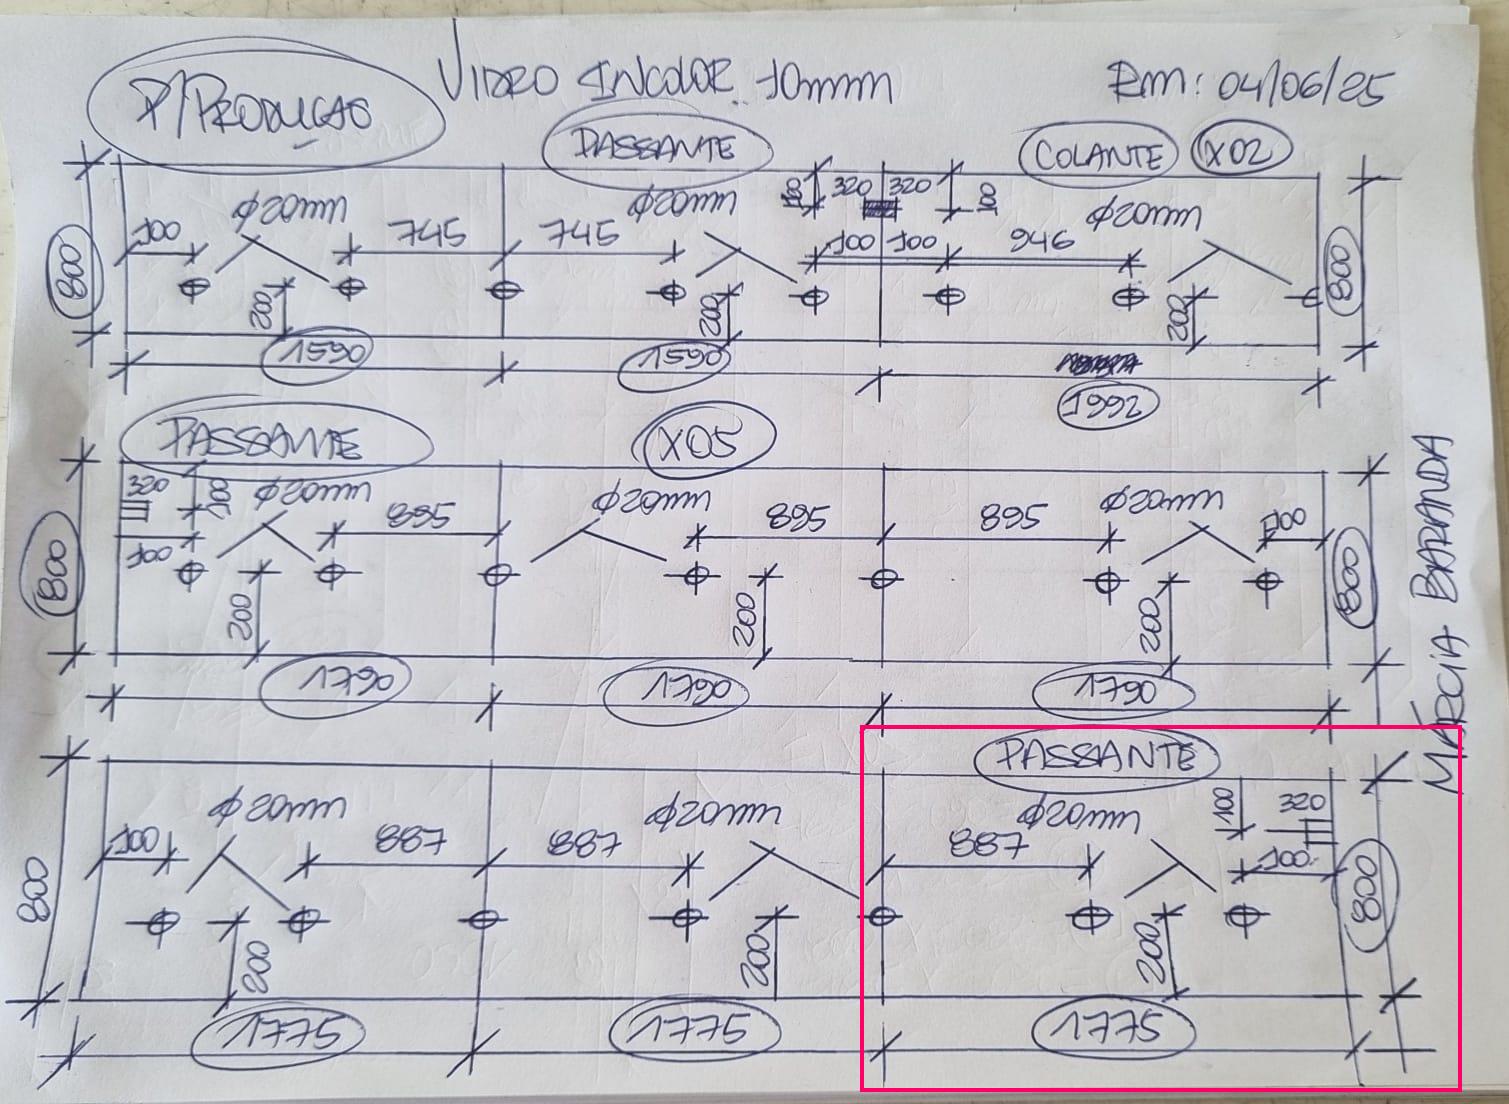 P/PRODUÇÃO
VIDRO INCOLOR 10mm
Em: 04/06/25
PASSANTE
COLANTE X02
100 320 320 100
Φ20mm Φ20mm Φ20mm
100 745 745 100 100 946
800 800
200 200 200
1590 1590 1992
PASSANTE X05
320 100 Φ20mm Φ20mm Φ20mm
895 895 895 100
100
800 800
200 200 200
1790 1790 1790
MÁRCIA BARANDA
PASSANTE
Φ20mm Φ20mm Φ20mm 100 320
100 887 887 887 100
800 800
200 200 200
1775 1775 1775